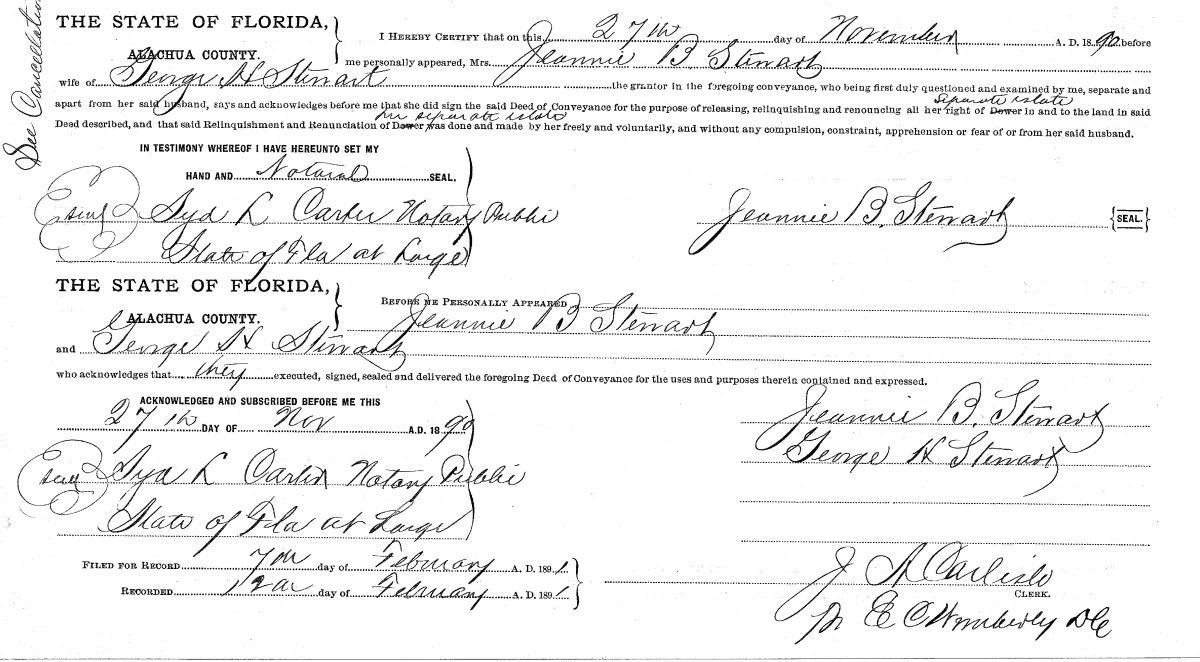 See Cancellation
THE STATE OF FLORIDA,
ALACHUA COUNTY.
I HEREBY CERTIFY that on this 27th day of November A. D. 1890 before
me personally appeared, Mrs. Jeannie B Stewart
wife of George H Stewart the grantor in the foregoing conveyance, who being first duly questioned and examined by me, separate and
apart from her said husband, says and acknowledges before me that she did sign the said Deed of Conveyance for the purpose of releasing, relinquishing and renouncing all her right of Dower separate estate in and to the land in said
Deed described, and that said Relinquishment and Renunciation of Dower separate estate was done and made by her freely and voluntarily, and without any compulsion, constraint, apprehension or fear of or from her said husband.
IN TESTIMONY WHEREOF I HAVE HEREUNTO SET MY
HAND AND Notarial SEAL.
Seal Syd L Carter Notary Public
Jeannie B. Stewart {SEAL.}
State of Fla at Large
THE STATE OF FLORIDA,
ALACHUA COUNTY.
BEFORE ME PERSONALLY APPEARED
Jeannie B Stewart
and George H Stewart
who acknowledges that they executed, signed, sealed and delivered the foregoing Deed of Conveyance for the uses and purposes therein contained and expressed.
ACKNOWLEDGED AND SUBSCRIBED BEFORE ME THIS
27th DAY OF Nov A.D. 1890
Jeannie B. Stewart
George H Stewart
Seal Syd L Carter Notary Public
State of Fla at Large
FILED FOR RECORD 7th day of February A. D. 1891
RECORDED 12th day of February A. D. 1891
J A Carlisle
CLERK.
E C Wimberly DC